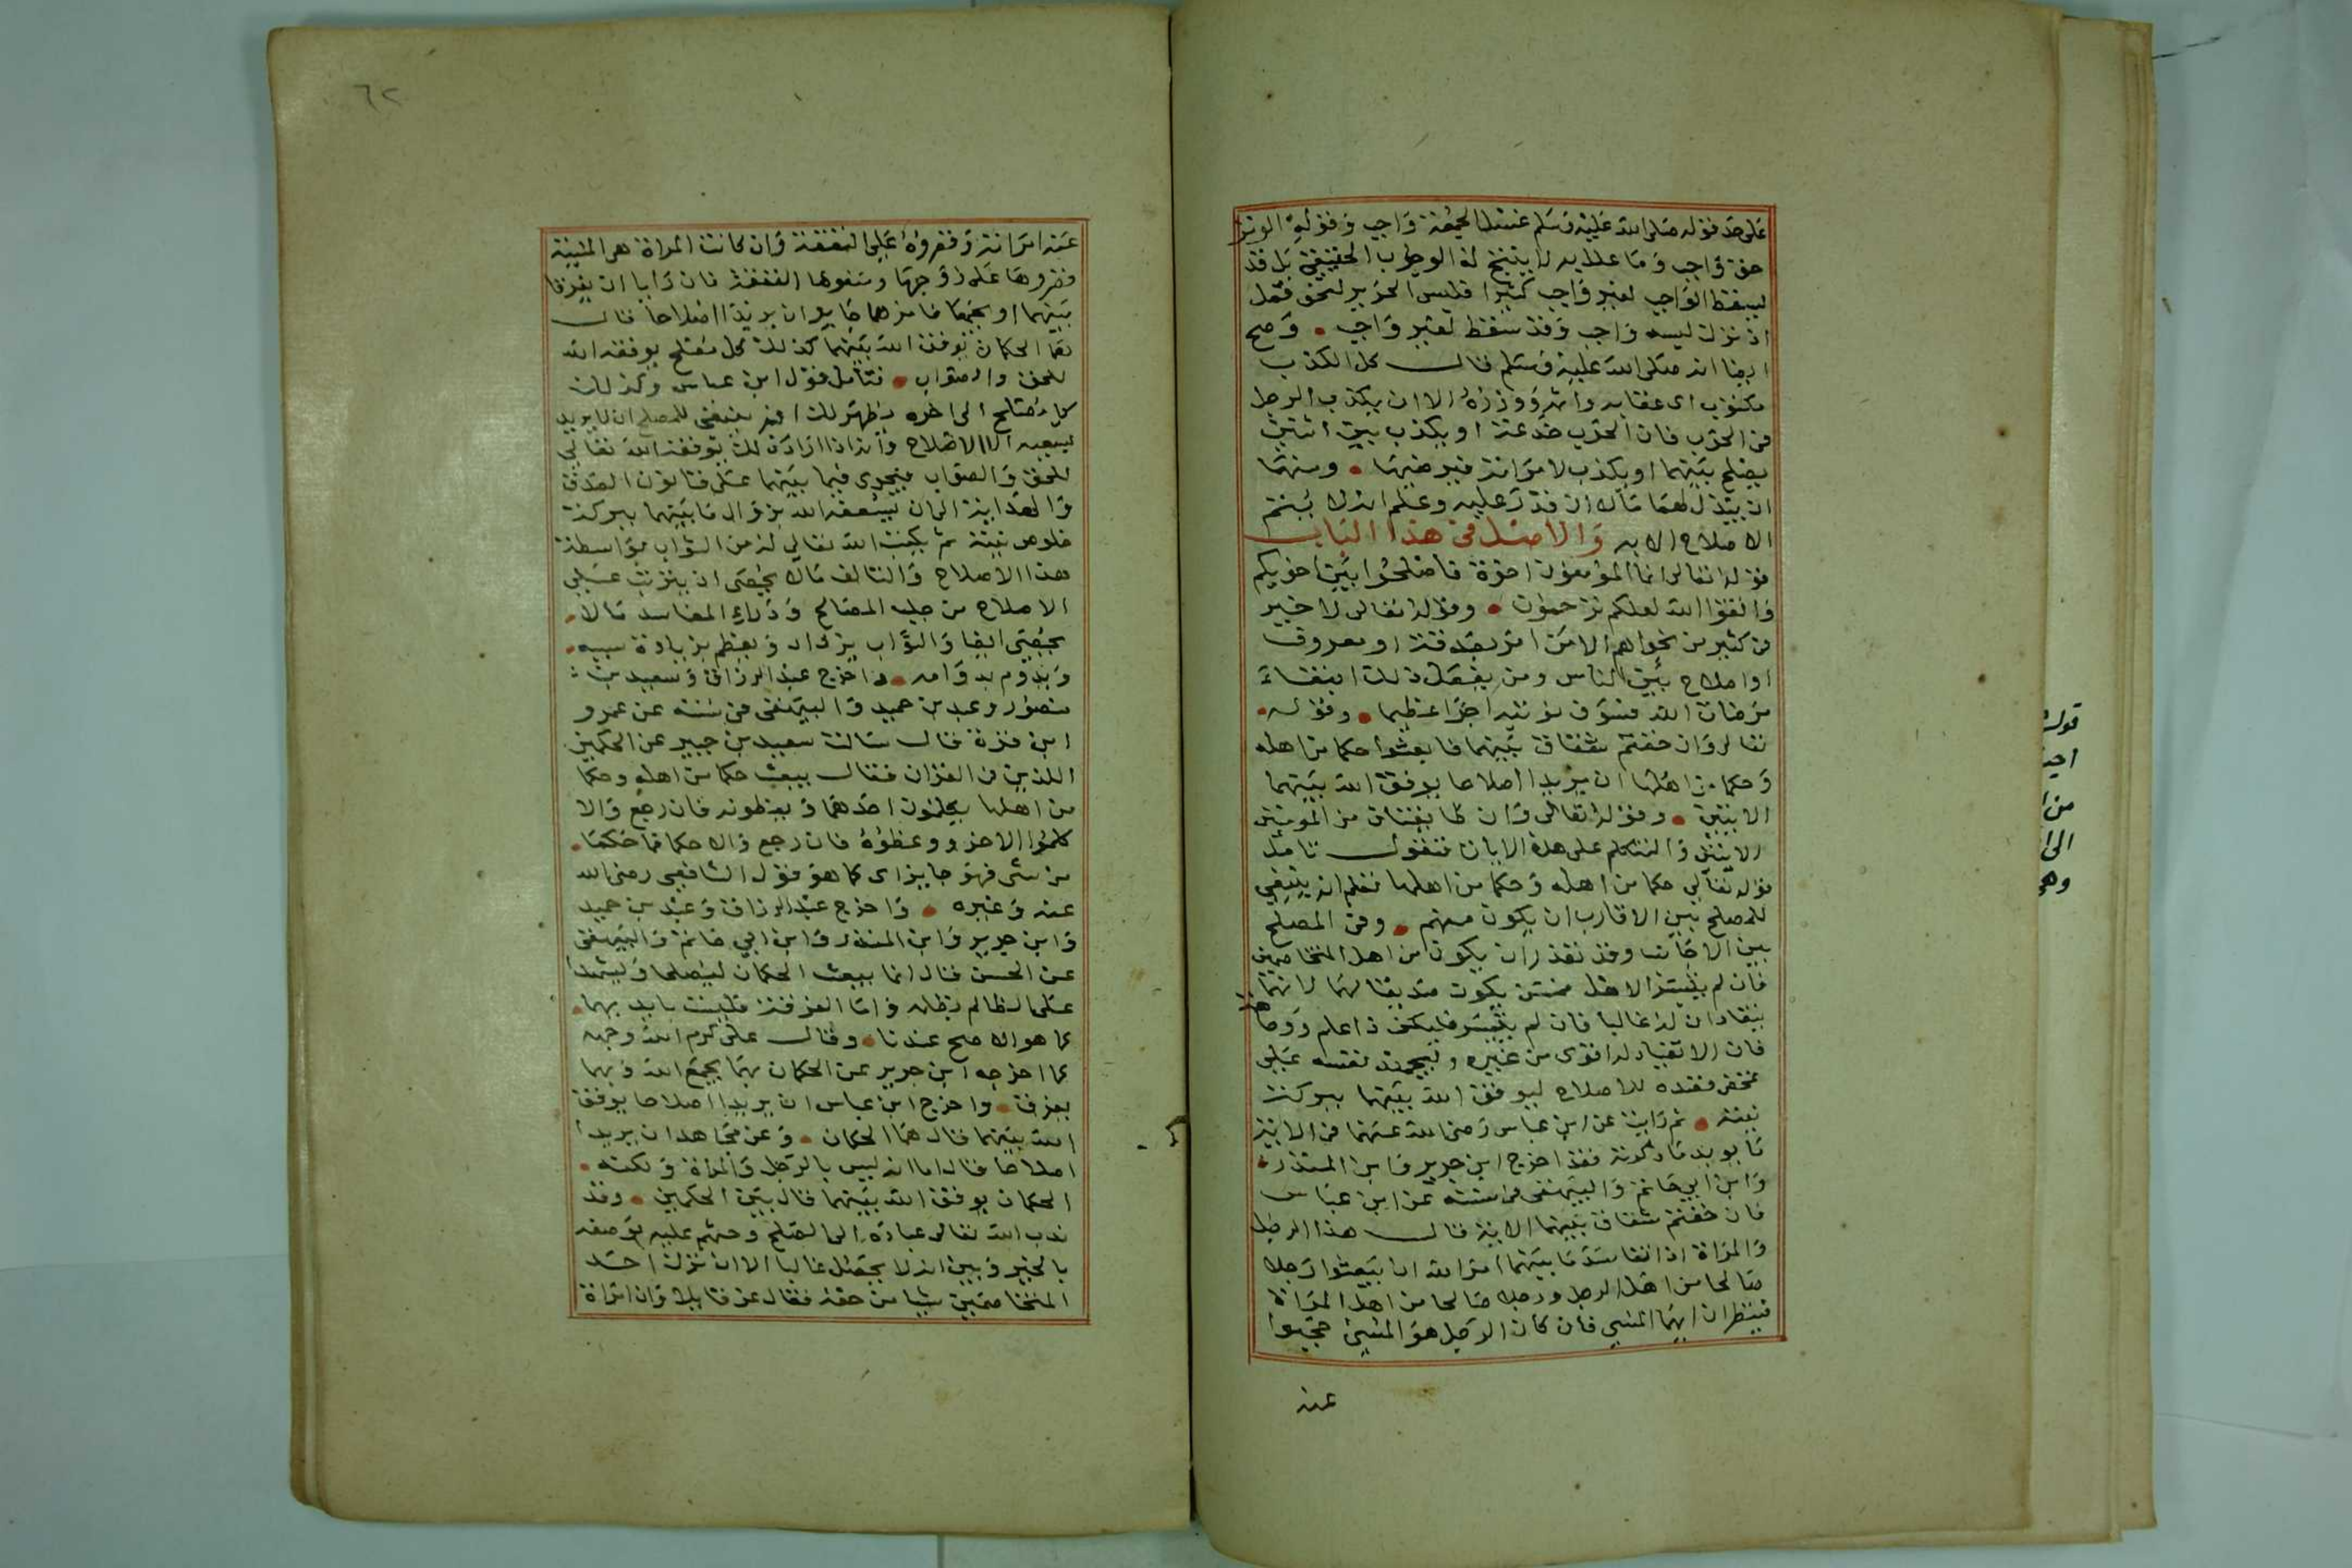 على حد قوله صلى الله عليه وسلم غسل الجمعة واجب وقوله الوتر
حق واجب وما علل به لا ينتج له الوجوب الحقيقي بل قد
يسقط الواجب لغير واجب كثيرا فليس الحرير لنحو قمل
اذ نزك لبسه واجب وقد سقط لغير واجب وصح
ايضا انه صلى الله عليه وسلم قال كل الكذب
مكتوب اى عقابه واثمه ووزره الا ان يكذب الرجل
فى الحرب فان الحرب خدعة او يكذب بين اثنين
يصلح بينهما او يكذب لامرأته فيرضيها ومنها
ان يبذل لهما مالا ان قدر عليه وعلم انه لا يتم
الاصلاح الا به والاصل فى هذا الباب
قوله تعالى انما المؤمنون اخوة فاصلحوا بين اخويكم
واتقوا الله لعلكم ترحمون وقوله تعالى لا خير
فى كثير من نجواهم الا من امر بصدقة او معروف
او اصلاح بين الناس ومن يفعل ذلك ابتغاء
مرضات الله فسوف نؤتيه اجرا عظيما وقوله
تعالى وان خفتم شقاق بينهما فابعثوا حكما من اهله
وحكما من اهلها ان يريدا اصلاحا يوفق الله بينهما
الايتين وقوله تعالى وان طائفتان من المؤمنين
الايتين ولنتكلم على هذه الايات فنقول تامل
قوله تعالى حكما من اهله وحكما من اهلها فعلم انه ينبغي
للمصلح بين الاقارب ان يكون منهم وفى المصلح
بين الاجانب وقد تعذر ان يكون من اهل المتخاصمين
فان لم يتيسر الاهل فمن يكون صديقا لهما لانهما
ينقادان له غالبا فان لم يتيسر فليكن ذا علم ووجاهة
فان الانقياد له اقوى من غيره وليجهد نفسه على
محض قصده للاصلاح ليوفق الله بينهما ببركة
نيته ثم رايت عن ابن عباس رضى الله عنهما فى الاية
ما يويد ما ذكرته فقد اخرج ابن جرير وابن المنذر
وابن ابي حاتم والبيهقى فى سننه عن ابن عباس
فان خفتم شقاق بينهما الاية قال هذا الرجل
والمراة اذا تفاسد ما بينهما امر الله ان يبعثوا رجلا
صالحا من اهل الرجل ورجلا صالحا من اهل المراة
فينظران ايهما المسي فان كان الرجل هو المسيئ حجبوا
عنه
٦٢
عنه امراته وقصروه على النفقة وان كانت المراة هى المسيئة
قصروها على زوجها ومنعوها النفقة فان رايا ان يفرقا
بينهما او يجمعا فامرهما جايز ان يريدا اصلاحا قال
هما الحكمان يوفق الله بينهما كذلك كل مصلح يوفقه الله
للحق والصواب فتامل قول ابن عباس وكذلك
كل مصلح الى اخره يظهر لك انه ينبغى للمصلح ان لا يريد
بسعيه الا الاصلاح وانه اذا اراد ذلك يوفقه الله تعالى
للحق والصواب فيجرى فيما بينهما على قانون الصدق
والعدالة الى ان يسعفه الله بزوال ما بينهما ببركة
خلوص نيته ثم يكتب الله تعالى له من الثواب بواسطة
هذا الاصلاح والتالف مالا يحصى اذ يترتب على
الاصلاح من جلب المصالح ودراء المفاسد مالا
يحصى ايضا والثواب يزداد ويعظم بزيادة سببه
ويدوم بدوامه واخرج عبد الرزاق وسعيد بن
منصور وعبد بن حميد والبيهقى فى سننه عن عمرو
ابن مرة قال سالت سعيد بن جبير عن الحكمين
اللذين فى القران فقال يبعث حكما من اهله وحكما
من اهلها يكلمون احدهما ويعظونه فان رجع والا
كلموا الاخر ووعظوه فان رجع والا حكما فما حكما
من شى فهو جايز اى كما هو قول الشافعى رضى الله
عنه وغيره واخرج عبد الرزاق وعبد بن حميد
وابن جرير وابن المنذر وابن ابي حاتم والبيهقى
عن الحسن قال انما يبعث الحكمان ليصلحا وليشهدا
على الظالم بظلمه واما الفرقة فليست بايديهما
كما هو الاصح عندنا وقال على كرم الله وجهه
كما اخرجه ابن جرير عن الحكمان بهما يجمع الله وبهما
يفرق واخرج ابن عباس ان يريدا اصلاحا يوفق
الله بينهما قال هما الحكمان وعن مجاهد ان يريدا
اصلاحا قال اما انه ليس بالرجل والمراة ولكنه
الحكمان يوفق الله بينهما قال بين الحكمين وقد
ندب الله تعالى عباده الى الصلح وحثهم عليه بوصفه
بالخير وبين انه لا يحصل غالبا الا ان نزل احد
المتخاصمين شيا من حقه فقال عز قايلا وان امراة
قوله
من
وهو